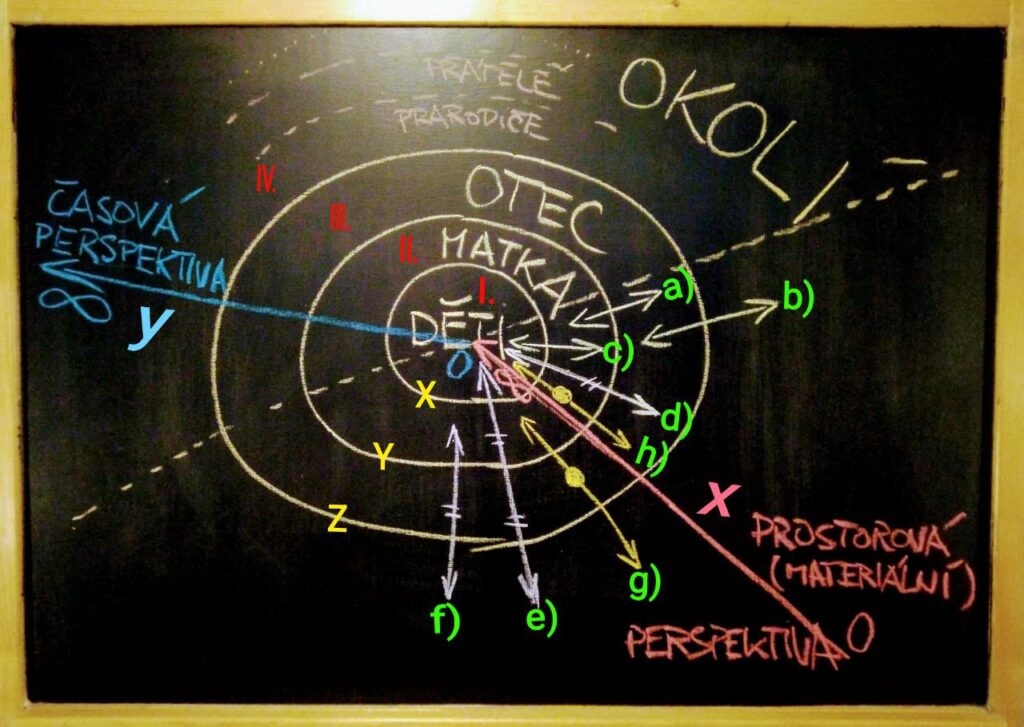 PŘÁTELÉ
PRARODIČE
OKOLÍ
IV.
OTEC
ČASOVÁ
PERSPEKTIVA
III.
II.
MATKA
I.
a)
b)
∞
y
DĚTI
0
∞
c)
X
d)
h)
Y
x
Z
PROSTOROVÁ
(MATERIÁLNÍ)
g)
f)
e)
PERSPEKTIVA
0